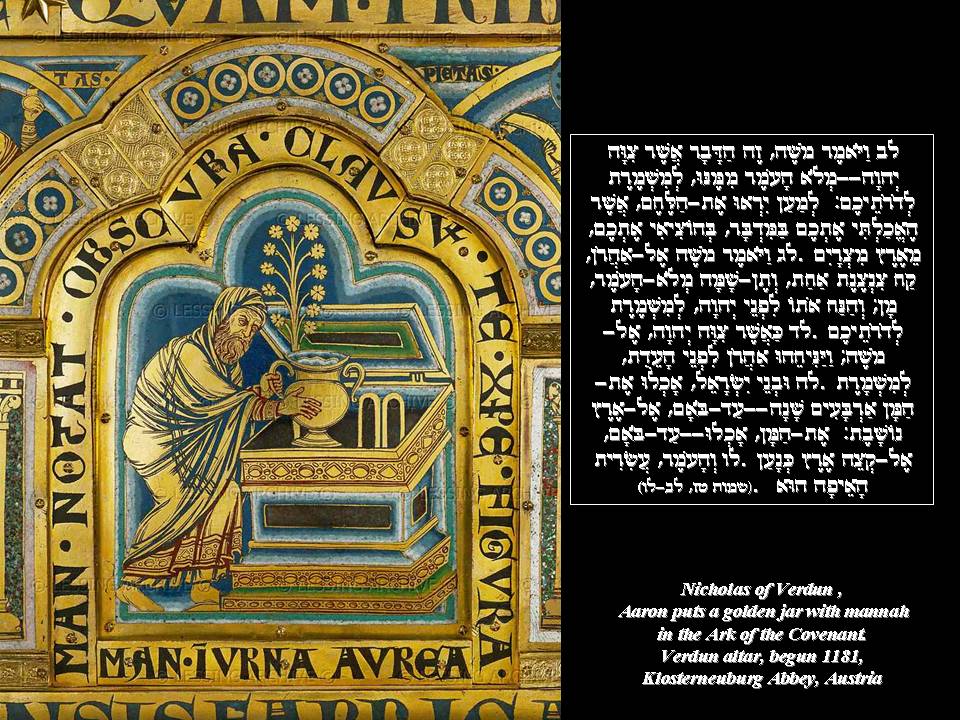 QVAM·PRIM
TAS·
PIETAS·
MAN·NOTAT·OBSCVRA·CLAVSV̄·TE·XP̄E·FIGVRA·
MAN·IVRNA AVREA
לב וַיֹּאמֶר מֹשֶׁה, זֶה הַדָּבָר אֲשֶׁר צִוָּה
יְהוָה--מְלֹא הָעֹמֶר מִמֶּנּוּ, לְמִשְׁמֶרֶת
לְדֹרֹתֵיכֶם: לְמַעַן יִרְאוּ אֶת-הַלֶּחֶם, אֲשֶׁר
הֶאֱכַלְתִּי אֶתְכֶם בַּמִּדְבָּר, בְּהוֹצִיאִי אֶתְכֶם,
מֵאֶרֶץ מִצְרָיִם .לג וַיֹּאמֶר מֹשֶׁה אֶל-אַהֲרֹן,
קַח צִנְצֶנֶת אַחַת, וְתֶן-שָׁמָּה מְלֹא-הָעֹמֶר,
מָן; וְהַנַּח אֹתוֹ לִפְנֵי יְהוָה, לְמִשְׁמֶרֶת
לְדֹרֹתֵיכֶם .לד כַּאֲשֶׁר צִוָּה יְהוָה, אֶל-
מֹשֶׁה; וַיַּנִּיחֵהוּ אַהֲרֹן לִפְנֵי הָעֵדֻת,
לְמִשְׁמָרֶת .לה וּבְנֵי יִשְׂרָאֵל, אָכְלוּ אֶת-
הַמָּן אַרְבָּעִים שָׁנָה--עַד-בֹּאָם, אֶל-אֶרֶץ
נוֹשָׁבֶת: אֶת-הַמָּן, אָכְלוּ--עַד-בֹּאָם,
אֶל-קְצֵה אֶרֶץ כְּנָעַן .לו וְהָעֹמֶר, עֲשִׂרִית
הָאֵיפָה הוּא . (שמות טז, לב-לו)
Nicholas of Verdun ,
Aaron puts a golden jar with mannah
in the Ark of the Covenant.
Verdun altar, begun 1181,
Klosterneuburg Abbey, Austria